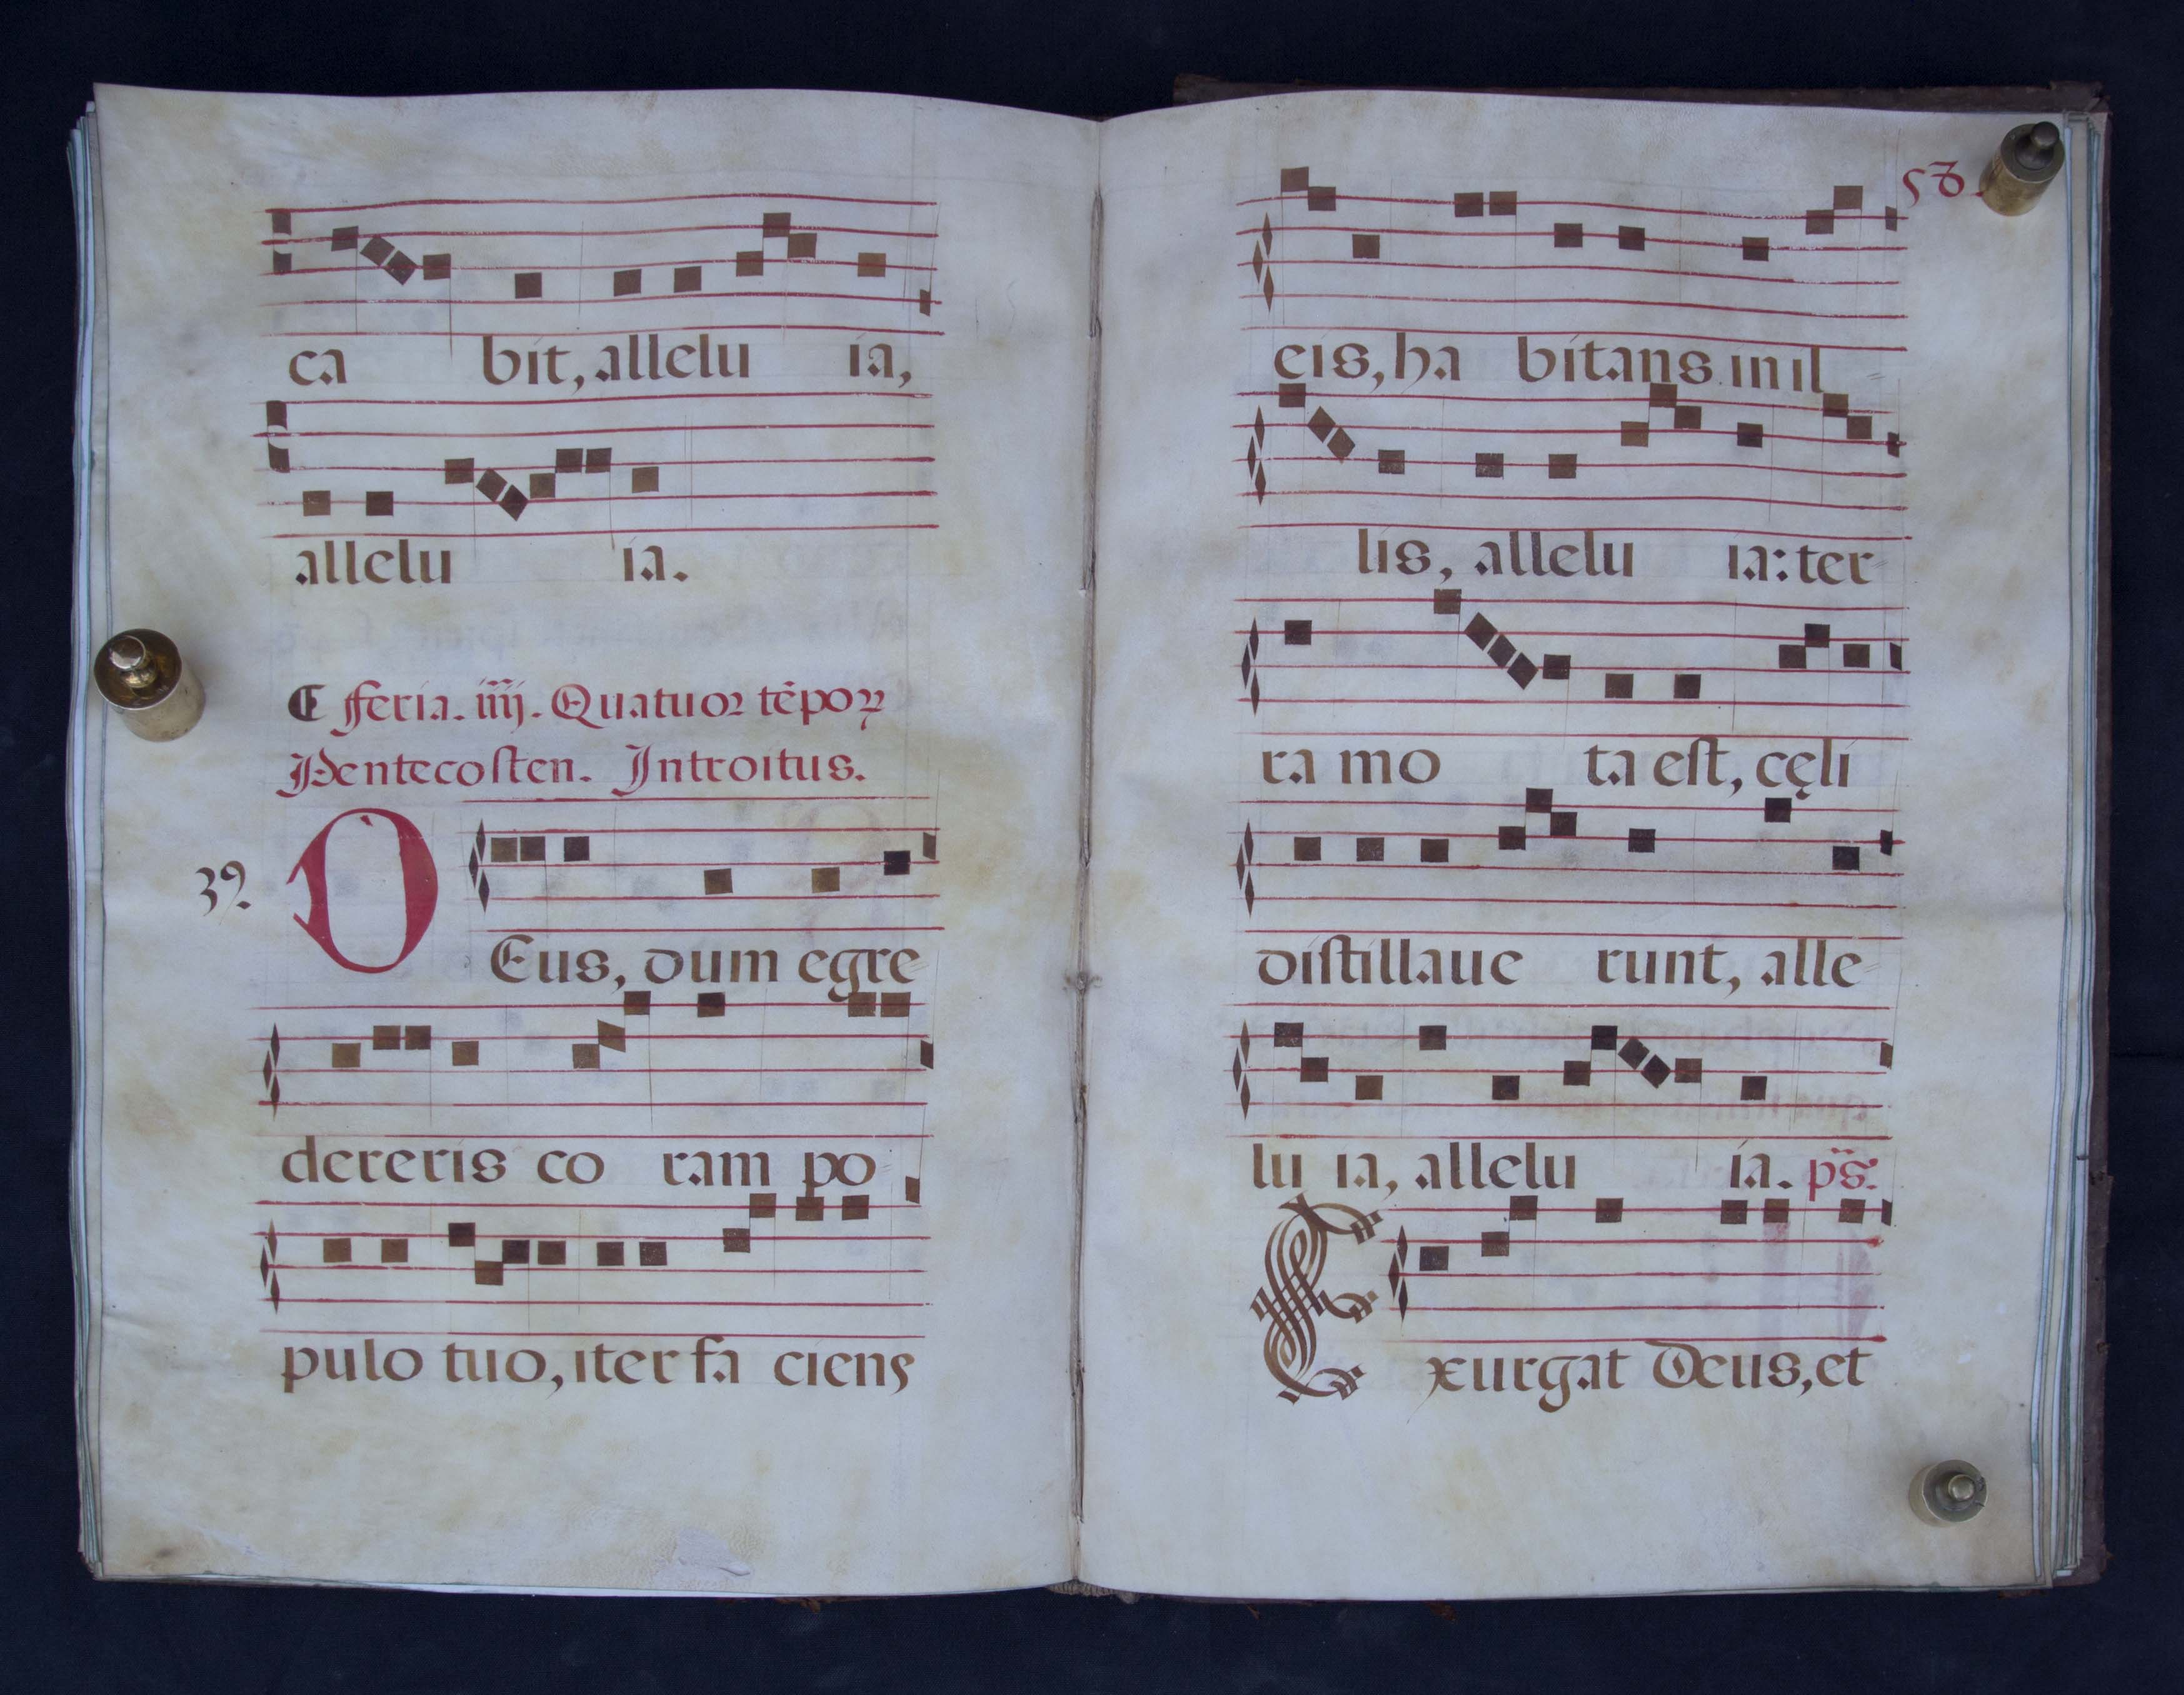 ca bit, allelu ia,
allelu ia.
¶ fferia. iiij. Quatuor tēpoꝝ
Pentecosten. Introitus.
39.
D Eus, dum egre
dereris co ram po
pulo tuo, iter fa ciens
58.
eis, ha bitans in il
lis, allelu ia: ter
ra mo ta est, cęli
distillaue runt, alle
lu ia, allelu ia. ps.
Exurgat Deus, et